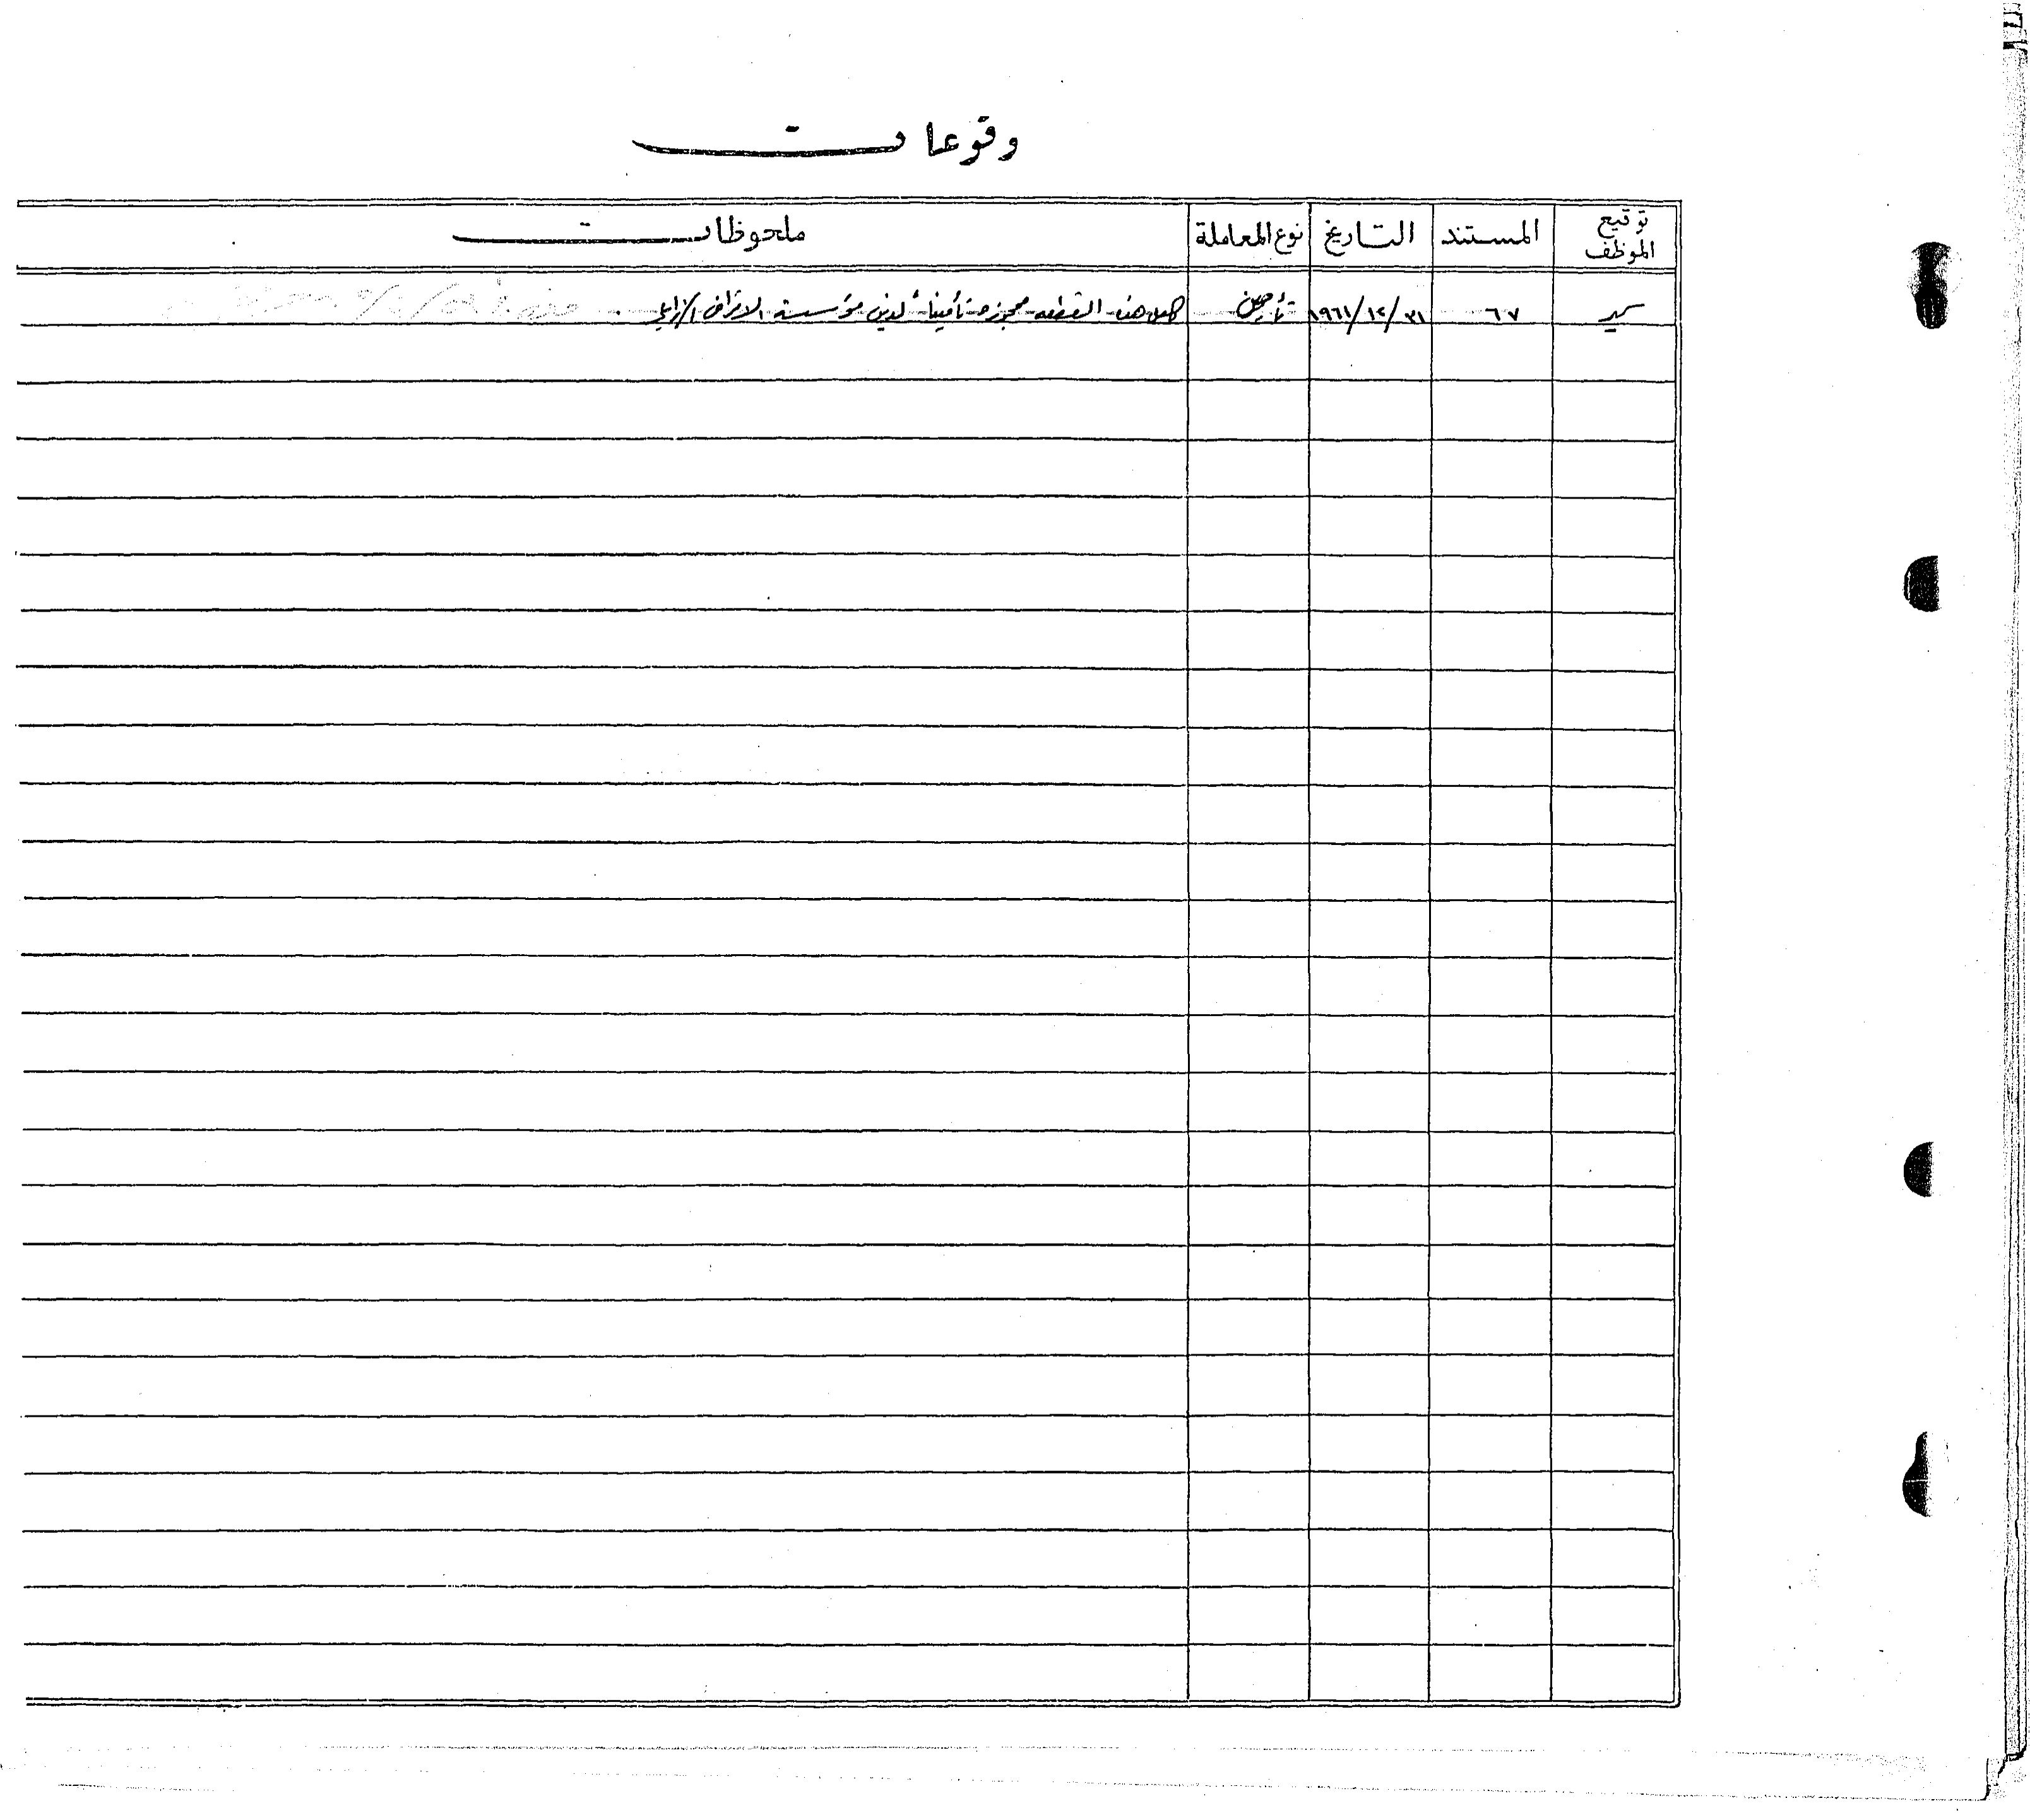 وقوعات
توقيع الموظف المستند التاريخ نوع المعاملة ملحوظات
٦٧ ٣١/١٢/١٩٦١ تأمين كامل هذه القطعه محجوزه تأميناً لدين مؤسسة الاقراض الزراعي